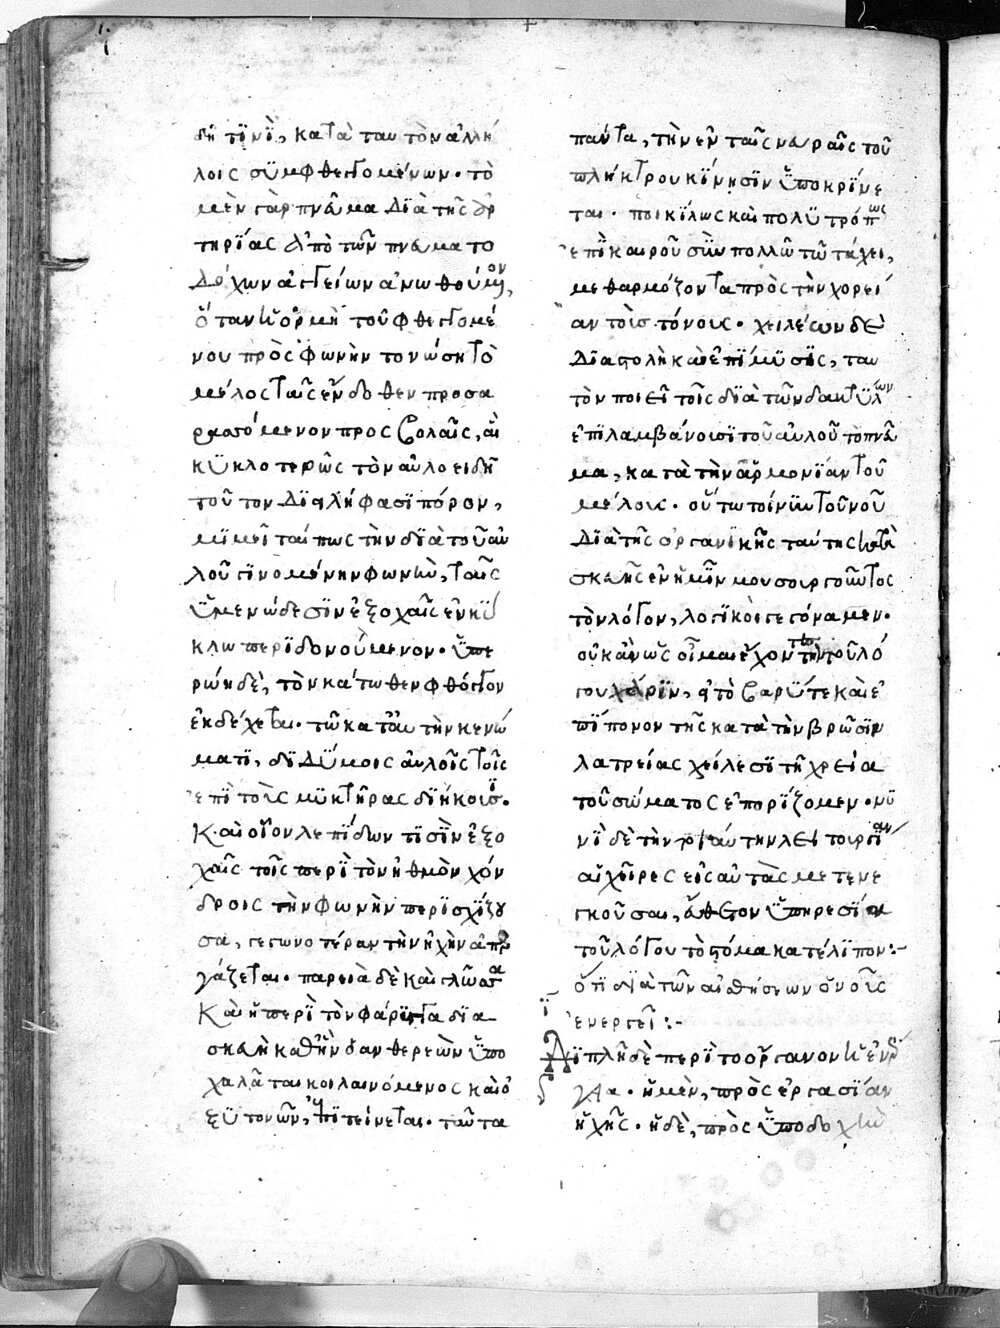 δή τϊνὶ, κατὰ ταυτὸν ἀλλή
λοις συμφθεγγομένων· τὸ
μὲν γὰρ πνεῦμα διὰ τῆς ἀρ
τηρίας ἀπὸ τῶν πνευματο
δόχων ἀγγείων ἀνωθούμενον,
ὅταν ἡ ὁρμὴ τοῦ φθεγγομέ
νου πρὸς φωνὴν τονώσῃ τὸ
μέλος ταῖς ἔνδοθεν προσα
ρασσόμενον προσβολαῖς, αἳ
κϋκλοτερῶς τὸν αὐλοειδῆ
τοῦτον διειλήφασϊ πόρον,
μϊμεῖταί πως τὴν διὰ τοῦ αὐ
λοῦ γινομένην φωνὴν, ταῖς
ὑμενώδεσϊν ἐξοχαῖς ἐν κϋ
κλω περϊδονούμενον· ὑπε
ρώη δὲ, τὸν κάτωθεν φθόγγον
ἐκδέχεται τῶ κατ' αὐτὴν κενώ
ματϊ, δϊδύμοις αὐλοῖς τοῖς
ἐπὶ τοὺς μϋκτῆρας διήκουσϊ·
καὶ οἷον λεπίδων τισὶν ἐξο
χαῖς τοῖς περὶ τὸν ἠθμὸν χόν
δροις τὴν φωνὴν περϊσχίζου
σα, γεγωνοτέραν τὴν ἠχὴν ἀπερ
γάζεται· παρειὰ δὲ καὶ γλῶσσα
καὶ ἡ περὶ τὸν φάρυγγα δια
σκευὴ καθ' ἣν ὁ ἀνθερεὼν ὑπο
χαλᾶται κοιλαινόμενος καὶ ὀ
ξϋτονῶν, ἐπιτείνεται· ταῦτα
πάντα, τὴν ἐν ταῖς νευραῖς τοῦ
πλήκτρου κίνησϊν ὑποκρίνε
ται· ποικίλως καὶ πολϋτρόπως
ἐπὶ καιροῦ σὺν πολλῶ τῶ τάχει,
μεθαρμόζοντα πρὸς τὴν χορεί
αν τοὺς τόνους· χειλέων δὲ
διαστολὴ καὶ ἐπίμϋσις, ταυ
τὸν ποιεῖ τοῖς διὰ τῶν δακτύλων
ἐπιλαμβάνουσι τοῦ αὐλοῦ τὸ πνεῦ
μα, κατὰ τὴν ἁρμονίαν τοῦ
μέλους· οὕτω τοίνυν τοῦ νοῦ
διὰ τῆς ὀργανικῆς ταύτης κατα
σκευῆς ἐν ἡμῖν μουσουργοῦντος
τὸν λόγον, λογικοὶ γεγόναμεν·
οὐκ ἂν ὡς οἶμαι ἔχοντες τὴν τοῦ λό
γου χάριν, εἰ τὸ βαρύ τε καὶ ἐ
πίπονον τῆς κατὰ τὴν βρῶσιν
λατρείας χείλεσϊ τῆ χρεία
τοῦ σώματος ἐπορίζομεν· νϋ
νὶ δὲ τὴν τοιαύτην λειτουργίαν
αἱ χεῖρες εἰς αὑτὰς μετενε
γκοῦσαι, εὔθετον ὑπηρεσία
τοῦ λόγου τὸ στόμα κατέλιπον:-
ὅτι διὰ τῶν αἰσθήσεων ὁ νοῦς
ἐνεργεῖ:-
ϊ
Διπλῆ δὲ περὶ τὸ ὄργανον ἡ ἐνέρ
γεια· ἡ μὲν, πρὸς ἐργασίαν
ἠχῆς· ἡ δὲ, πρὸς ὑποδοχὴν